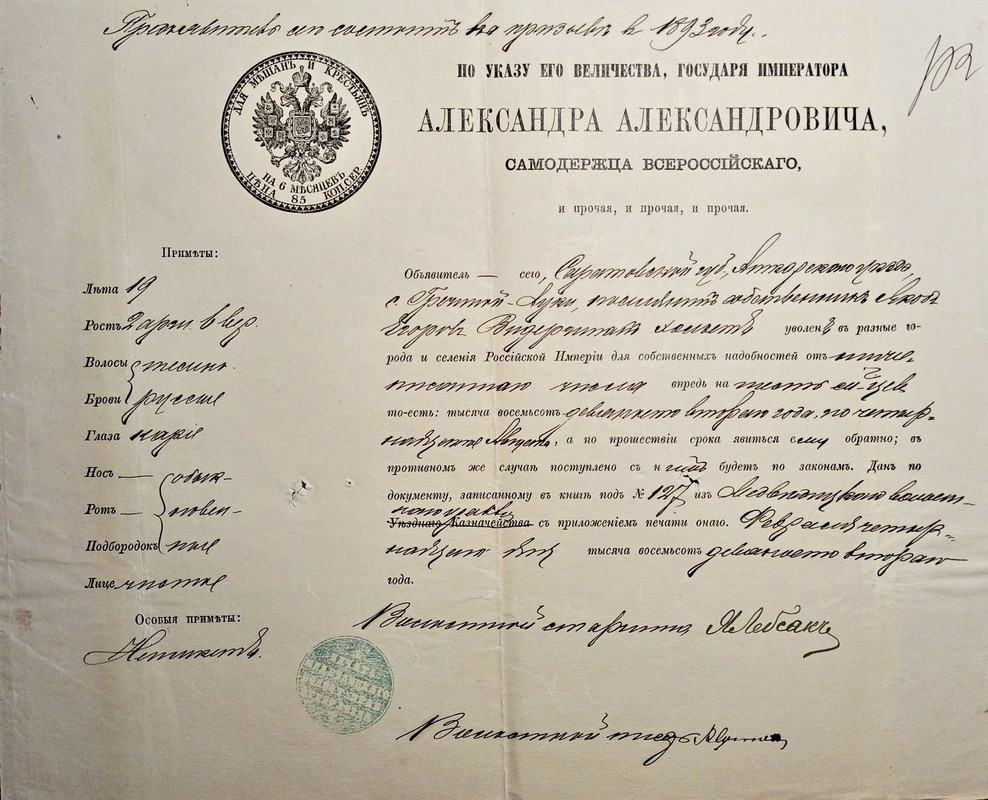 Предъявитель сего состоитъ на призывѣ въ 1893 году.
ДЛЯ МѢЩАНЪ И КРЕСТЬЯНЪ
НА 6 МѢСЯЦЕВЪ
ЦѢНА 85 КОП. СЕР.
ПО УКАЗУ ЕГО ВЕЛИЧЕСТВА, ГОСУДАРЯ ИМПЕРАТОРА
АЛЕКСАНДРА АЛЕКСАНДРОВИЧА,
САМОДЕРЖЦА ВСЕРОССІЙСКАГО,
и прочая, и прочая, и прочая.
Примѣты:
Лѣта 19
Ростъ 2 арш. 6 вер.
Волосы темно
Брови русые
Глаза каріе
Носъ — обык-
Ротъ — новен-
Подбородокъ ные
Лице чистое
Особыя примѣты:
Неимѣетъ.
Объявитель — сего, Саратовской губ. Аткарскаго уѣзда,
с. Гречиной-Луки, поселянинъ собственникъ Яковъ
Егоровъ холостъ уволенъ въ разные го-
рода и селенія Россійской Имперіи для собственныхъ надобностей отъ ниже-
писаннаго числа впредь на шесть м-цевъ
то-есть: тысяча восемьсотъ девяносто втораго года, по четыр-
надцатое Августа, а по прошествіи срока явиться ему обратно; въ
противномъ же случаѣ поступлено съ нимъ будетъ по законамъ. Данъ по
документу, записанному въ книгѣ подъ № 127 изъ Медвѣдицкаго волост-
наго правл.
Уѣзднаго Казначейства съ приложеніемъ печати онаго. Февраля четыр-
надцатаго дня тысяча восемьсотъ девяносто втораго
года.
Волостной старшина Я Лебсакъ
Волостной писарь